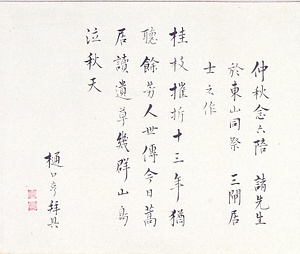 仲秋念六陪 諸先生
於東山同祭 三閒居
士之作
桂枝摧折十三年猶
聽餘芳人世傳今日蒿
居讀遺草幾群山鳥
泣秋天
樋口 拜具